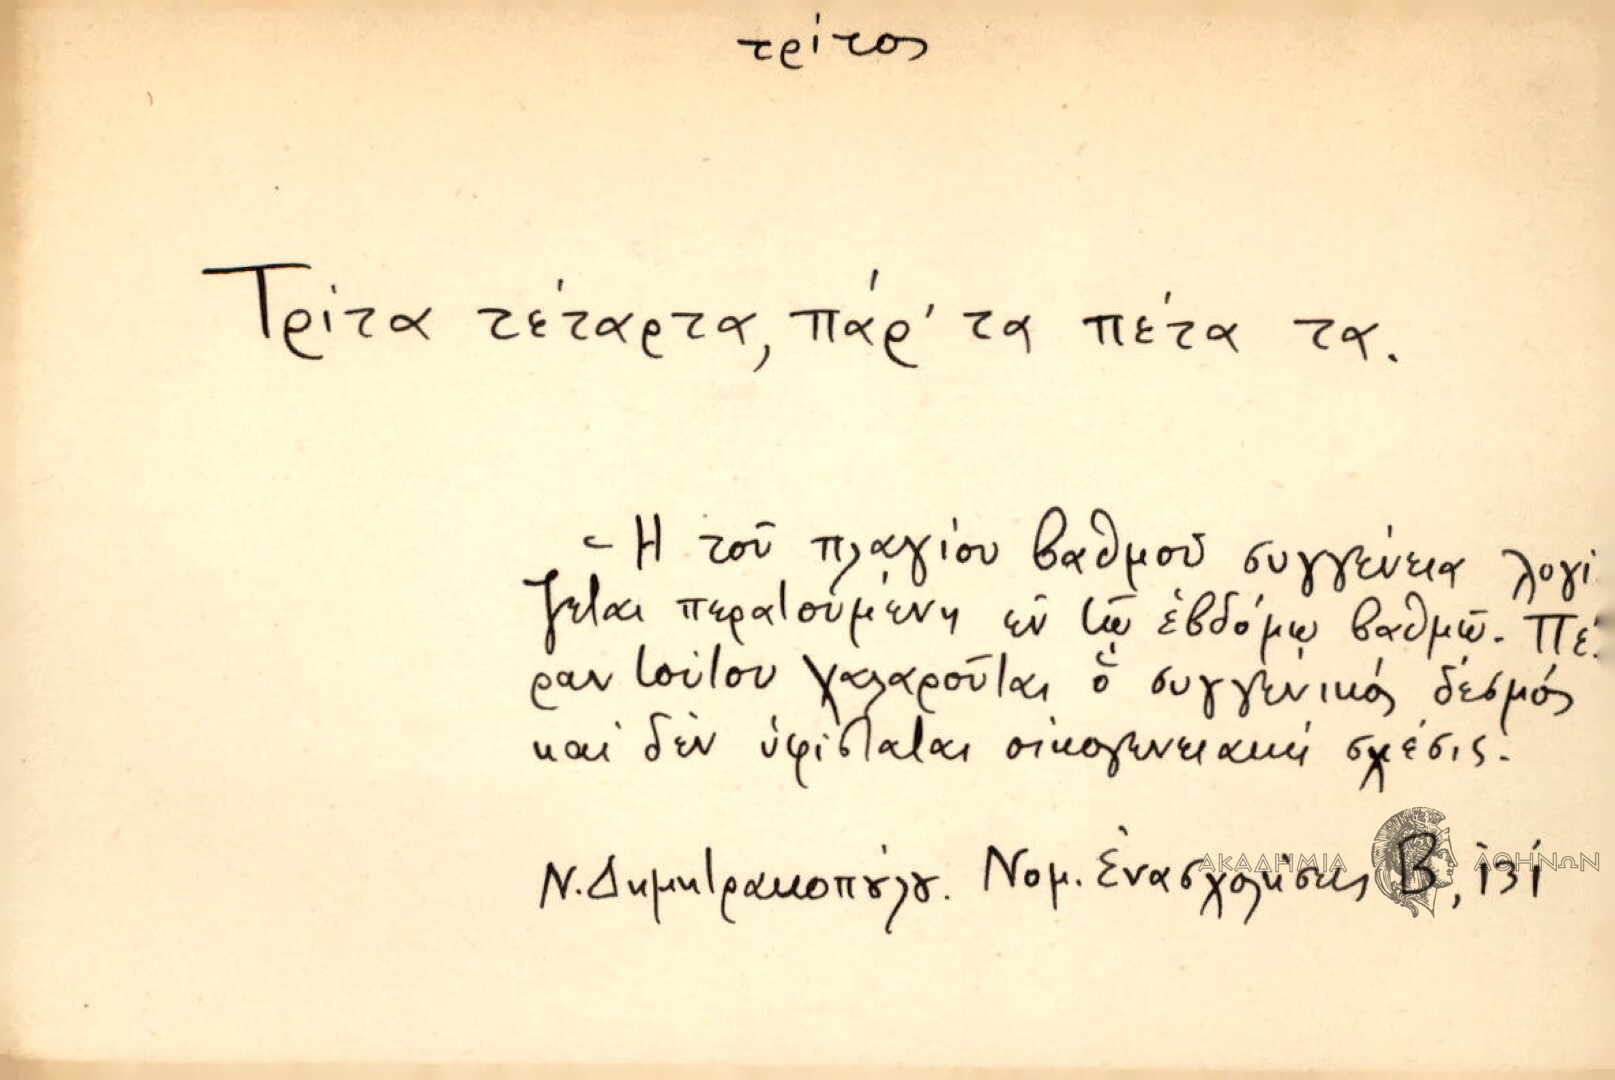 τρίτος
Τρίτα τέταρτα, πάρ' τα πέτα τα.
- Ἡ τοῦ πλαγίου βαθμοῦ συγγένεια λογί
ζεται περατουμένη ἐν τῷ ἑβδόμῳ βαθμῷ. Πέ
ραν τούτου χαλαροῦται ὁ συγγενικός δεσμός
καί δέν ὑφίσταται οἰκογενειακή σχέσις.
Ν. Δημητρακοπούλου. Νομ. ἐνασχολήσεις Β,
ΑΚΑΔΗΜΙΑ ΑΘΗΝΩΝ